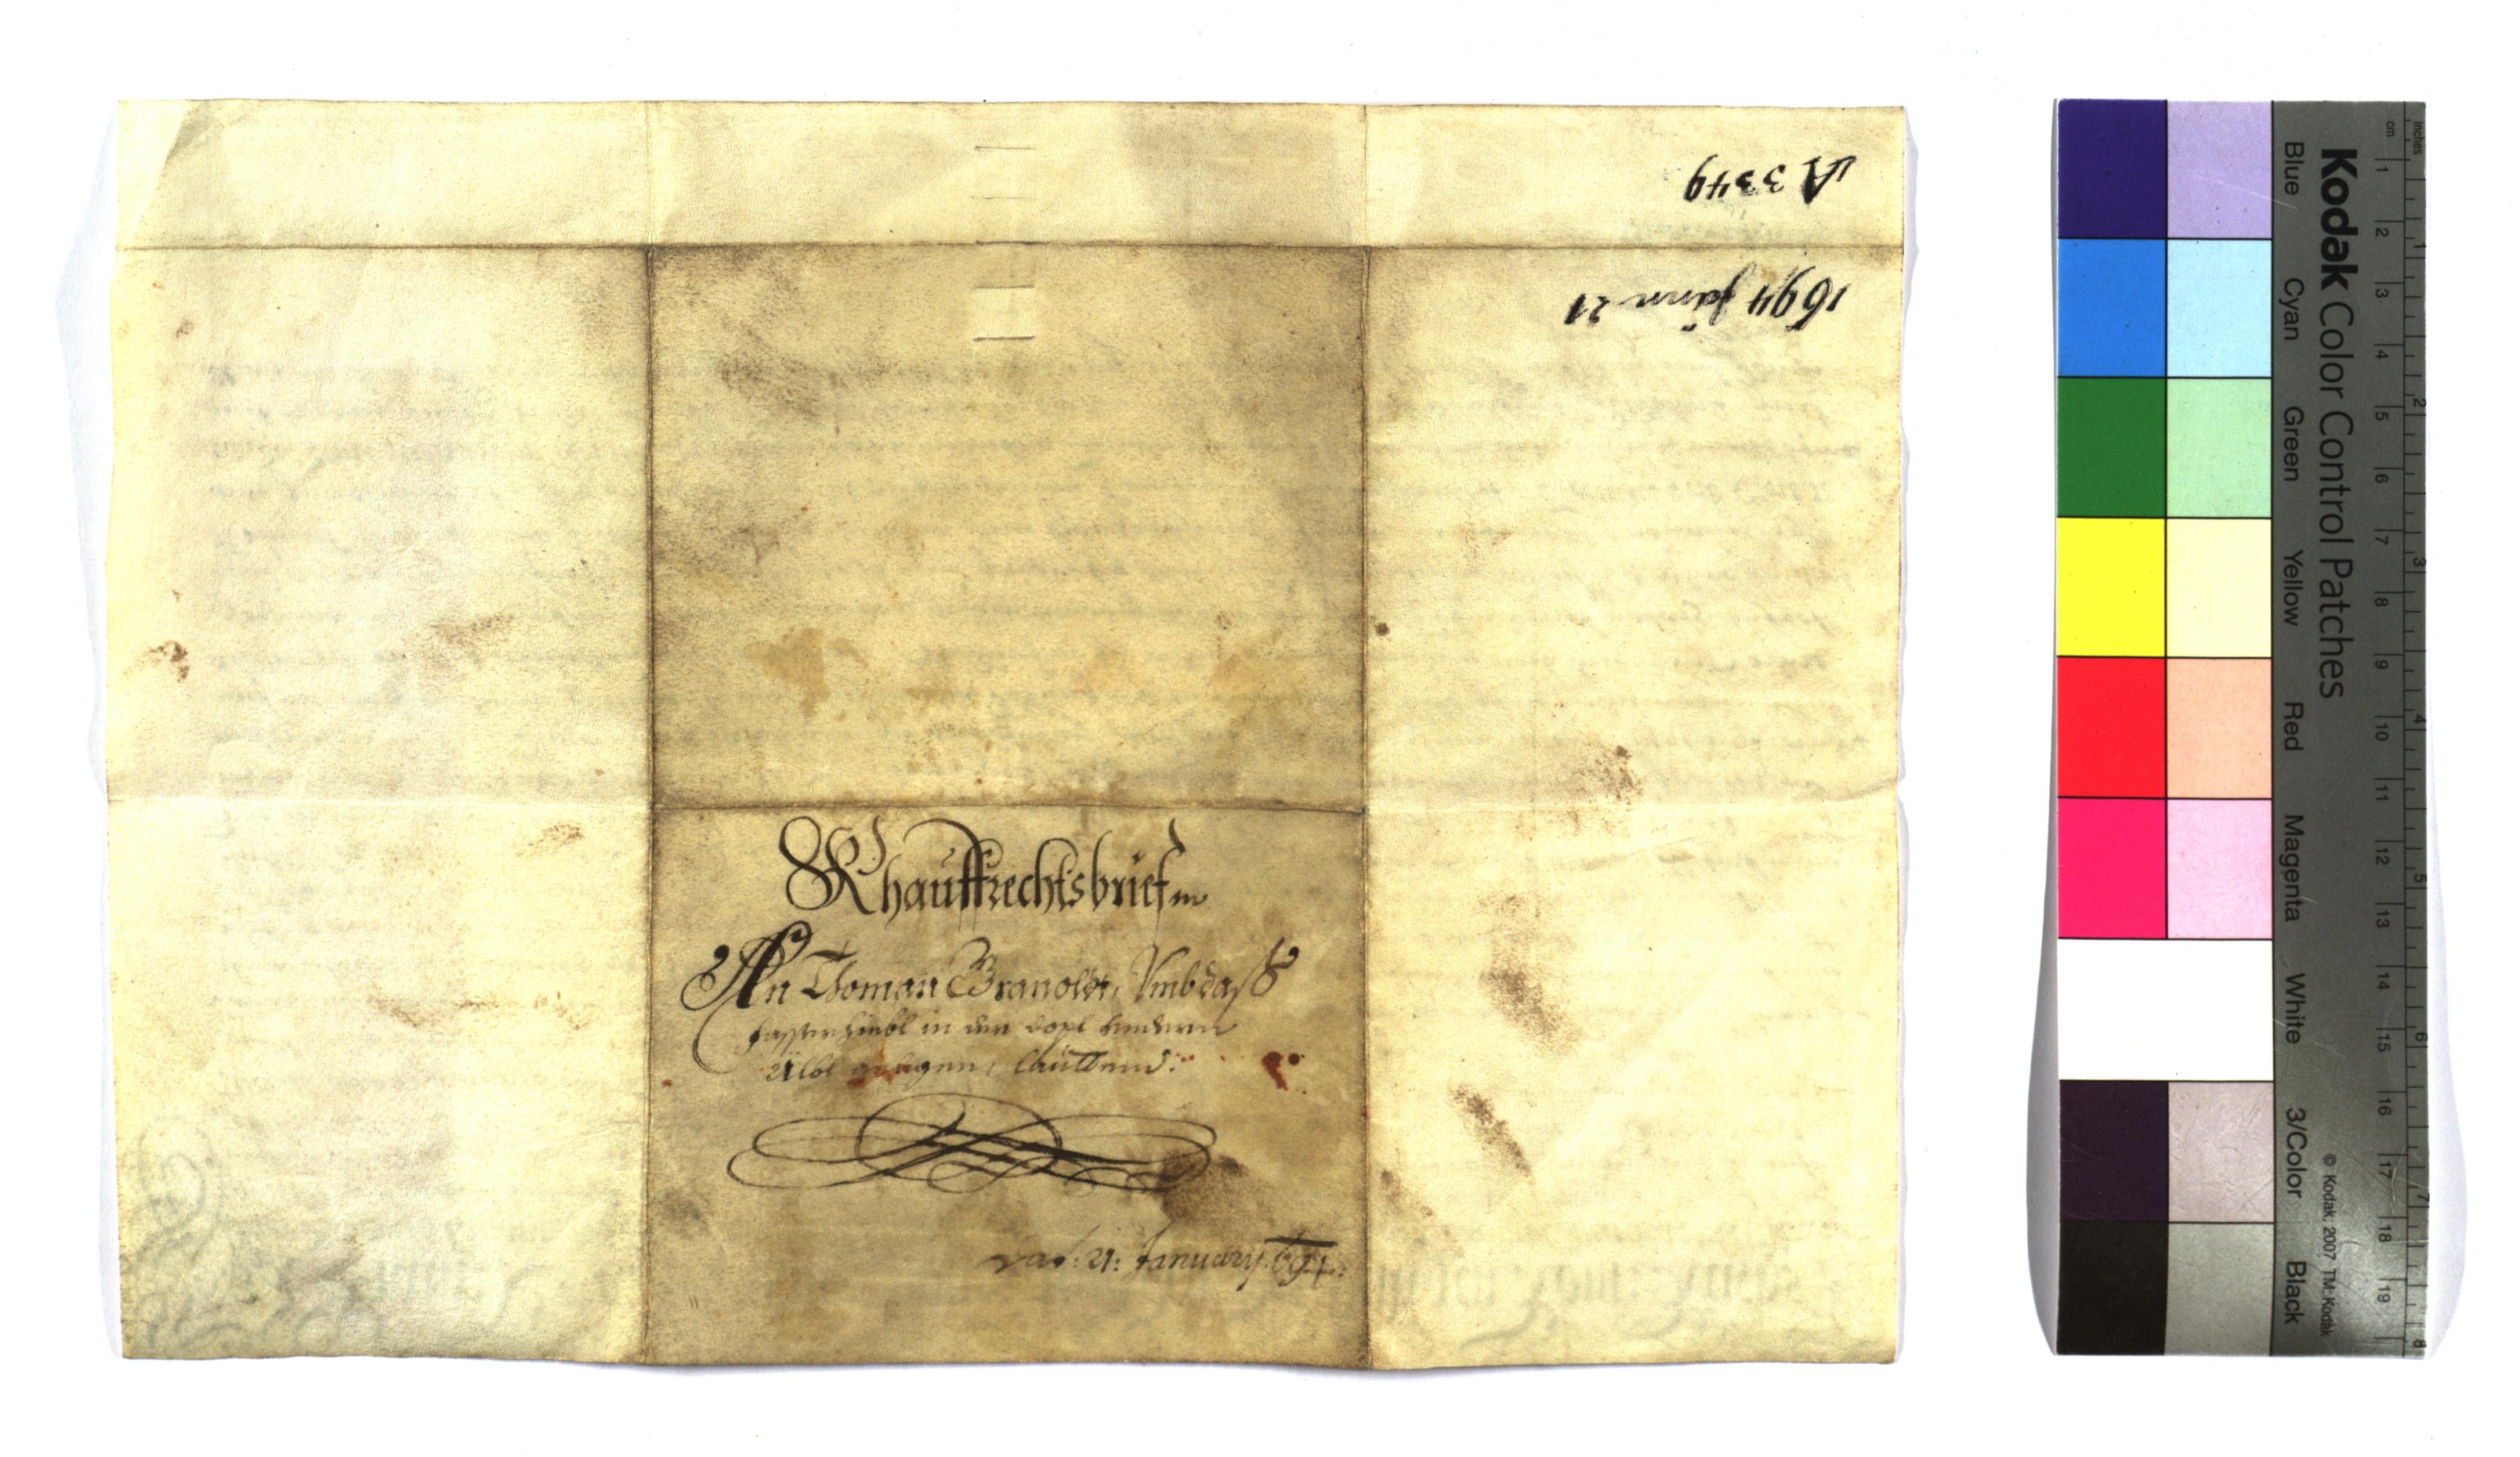 A 3349
1694 Jänn 21
Khauffrechtsbrief
An Thoman Brandlet, Vmb daß
in der
Albl gelegen, lauttend:
Dat: 21: January 694:
Kodak Color Control Patches
Blue Cyan Green Yellow Red Magenta White 3/Color Black
© Kodak, 2007 TM: Kodak
inches 1 2 3 4 5 6 7 8
cm 1 2 3 4 5 6 7 8 9 10 11 12 13 14 15 16 17 18 19